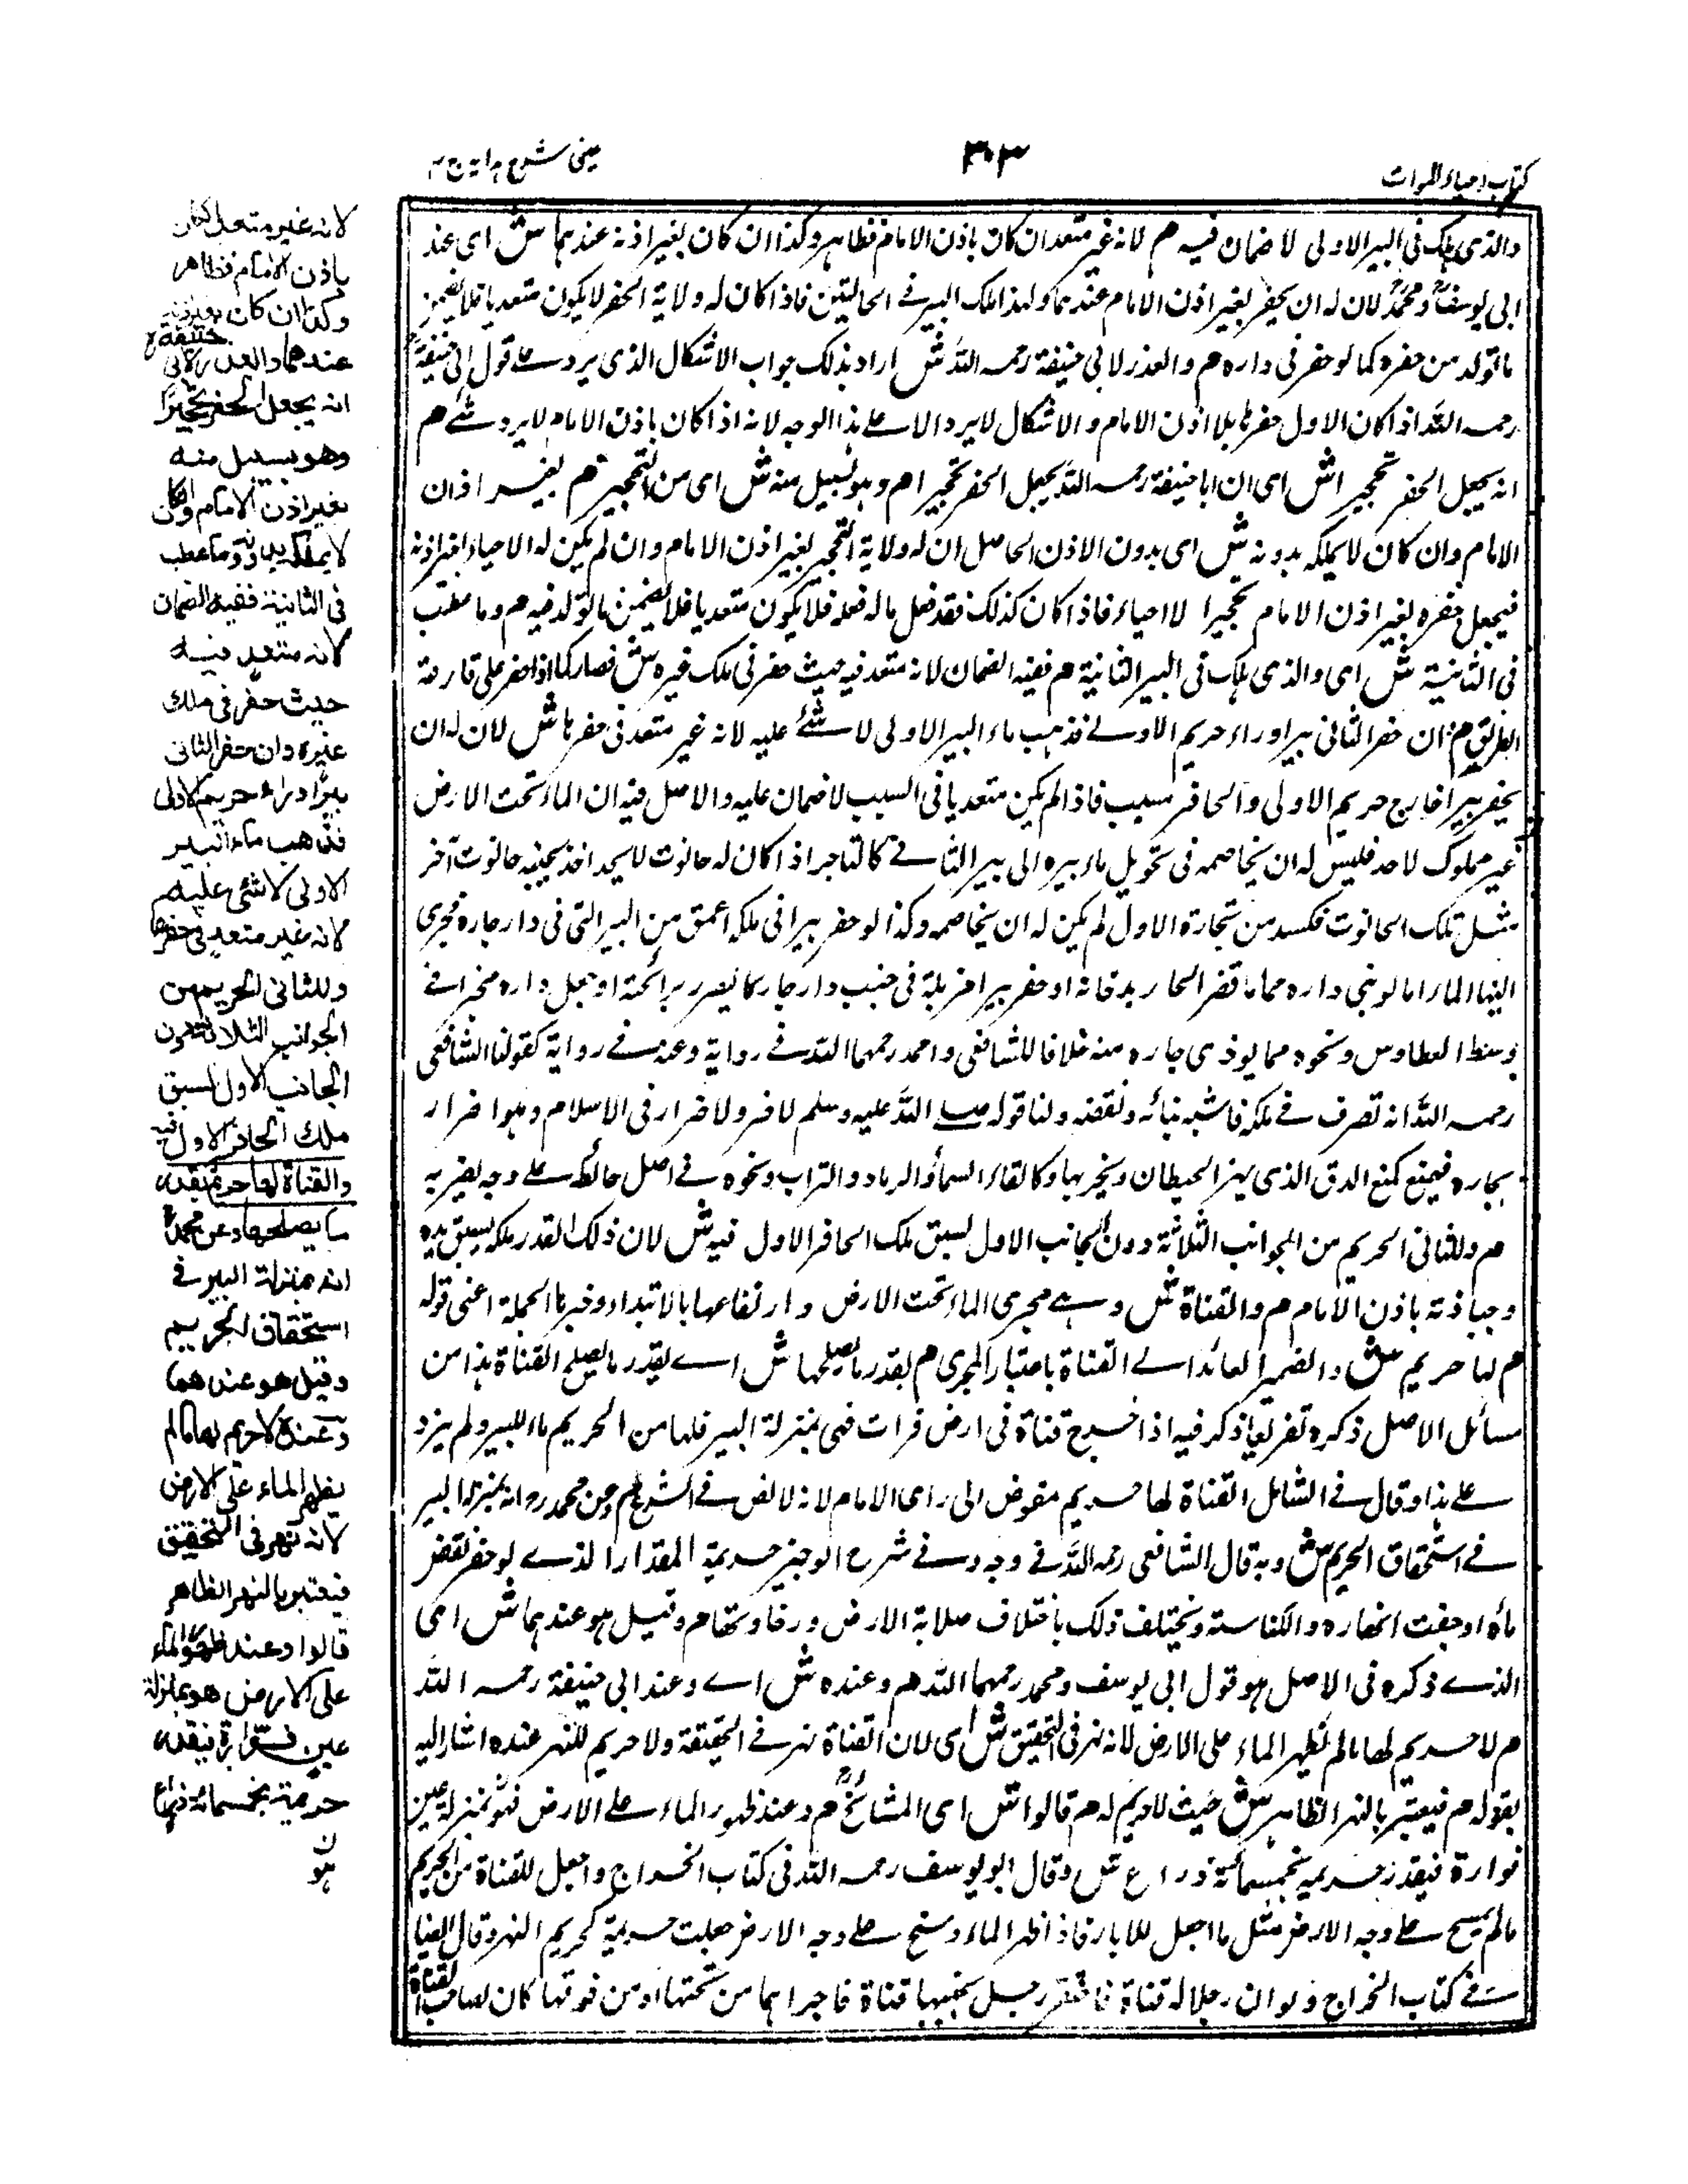 كتاب احياء الموات
٣٠٣
عينى شرح هداية ج ٤
والذى هلك فى البير الاولى لا ضمان فيه م لانه غير متعد ان كان باذن الامام فظاهر وكذا ان كان بغير اذنه عندهما ش اى عند
ابى يوسف ومحمد لان له ان يحفر بغير اذن الامام عندهما ولهذا ملك البير فى الحالتين فاذا كان له ولاية الحفر لا يكون متعديا فلا يضمن
ما تولد من حفره كما لو حفر فى داره م والعذر لابى حنيفة رحمه الله ش اراد بذلك جواب الاشكال الذى يرد على قول ابى حنيفة
رحمه الله اذا كان الاول حفرها بلا اذن الامام والاشكال لا يرد الا على هذا الوجه لانه اذا كان باذن الامام لا يرد شئ م
انه يجعل الحفر تحجيرا ش اى ان ابا حنيفة رحمه الله يجعل الحفر تحجيرا م وهو بسبيل منه ش اى من التحجير م بغير اذن
الامام وان كان لا يملكه بدونه ش اى بدون الاذن الحاصل ان له ولاية التحجير بغير اذن الامام وان لم يكن له الاحياء بغير اذنه
فيجعل حفره بغير اذن الامام تحجيرا لا احياء فاذا كان كذلك فقد فعل ما له فعله فلا يكون متعديا فلا يضمن ما تولد فيه م وما عطب
فى الثانية ش اى والذى هلك فى البير الثانية م ففيه الضمان لانه متعد فيه حيث حفر فى ملك غيره ش فصار كما اذا حفر على قارعة
الطريق م ان حفر الثانى بيرا وراء حريم الاولى فذهب ماء البير الاولى لا شئ عليه لانه غير متعد فى حفرها ش لان له ان
يحفر بيرا خارج حريم الاولى والحافر مسبب فاذا لم يكن متعديا فى السبب لا ضمان عليه والاصل فيه ان الماء تحت الارض
غير مملوك لاحد فليس له ان يخاصمه فى تحويل ماء بيره الى بير الثانى كالتاجر اذا كان له حانوت لا يجد اخذ بجنبه حانوت آخر
بمثل تلك الحانوت فكسد من تجارة الاول لم يكن له ان يخاصمه وكذا لو حفر بيرا فى ملكه اعمق من البير التى فى دار جاره فجرى
اليها الماء اما لو بنى داره حماما بدخانه او حفر بيرا مزبلة فى جنب دار جاره برائحة او جعل داره مخبزا فى
وسط العطاوس ونحوه مما يوذى جاره منه خلافا للشافعى واحمد رحمهما الله فى رواية وعنه فى رواية كقولنا الشافعى
رحمه الله انه تصرف فى ملكه فاشبه بنائه ونقضه ولنا قوله صلى الله عليه وسلم لا ضر ولا ضرار فى الاسلام وهوا ضرار
بجاره فيمنع كمنع الدق الذى يهز الحيطان ويخربها وكالقاء السماد والرماد والتراب ونحوه فى اصل حائطه على وجه يضر به
م وللثانى الحريم من الجوانب الثلاثة دون الجانب الاول لسبق ملك الحافر الاول فيه ش لان ذلك القدر ملكه بسبق يده
وحيازته باذن الامام م والقناة ش وهى مجرى الماء تحت الارض وارتفاعها بالابتداء وخبرها الجملة اعنى قوله
م لها حريم ش والضمير العائد الى القناة باعتبار المجرى م بقدر ما يصلحها ش اى بقدر ما يصلح القناة هذا من
مسائل الاصل ذكره تفريعا ذكر فيه اذا اخرج قناة فى ارض فرات فهى بمنزلة البير فلها من الحريم ما للبير ولم يزد
على هذا وقال فى الشامل القناة لها حريم مفوض الى راى الامام لانه لا نص فى الشرع م وعن محمد رح انه بمنزلة البير
فى استحقاق الحريم ش وبه قال الشافعى رحمه الله فى وجه وفى شرح الوجيز حريمه المقدار الذى لو حفر نقص
ماءه او والكناسة ويختلف ذلك باختلاف صلابة الارض ورخاوتها م وقيل هو عندهما ش اى
الذى ذكره فى الاصل هو قول ابى يوسف ومحمد رحمهما الله م وعنده ش اى وعند ابى حنيفة رحمه الله
م لا حريم لها مالم يظهر الماء على الارض لانه نهر فى التحقيق ش اى لان القناة نهر فى الحقيقة ولا حريم للنهر عنده اشار اليه
بقوله م فيعتبر بالنهر الظاهر ش حيث لا حريم له م قالوا ش اى المشائخ م وعند ظهور الماء على الارض فهو بمنزلة عين
فوارة فيقدر حريمه بخمسمائة ذراع ش وقال ابو يوسف رحمه الله فى كتاب الخراج واجعل للقناة من الحريم
مالم يسح على وجه الارض مثل ما اجعل للابار فاذا ظهر الماء وسح على وجه الارض جعلت حريمه كحريم النهر وقال ايضا
فى كتاب الخراج ولو ان رجلا له قناة فاحتفر رجل بجنبها قناة فاجراها من تحتها او من فوقها كان لصاحب القناة
لانه غير متعد ان كان
باذن الامام فظاهر
وكذا ان كان بغير اذنه
عندهما والعذر لابى حنيفة رح
انه يجعل الحفر تحجيرا
وهو بسبيل منه
بغير اذن الامام وان كان
لا يملكه بدونه وما عطب
فى الثانية ففيه الضمان
لانه متعد فيه
حيث حفر فى ملك
غيره وان حفر الثانى
بيرا وراء حريم الاولى
فذهب ماء البير
الاولى لا شئ عليه
لانه غير متعد فى حفرها
وللثانى الحريم من
الجوانب الثلاثة دون
الجانب الاول لسبق
ملك الحافر الاول فيه
والقناة لها حريم بقدر
ما يصلحها وعن محمد رح
انه بمنزلة البير فى
استحقاق الحريم
وقيل هو عندهما
وعنده لا حريم لها مالم
يظهر الماء على الارض
لانه نهر فى التحقيق
فيعتبر بالنهر الظاهر
قالوا وعند ظهور الماء
على الارض هو بمنزلة
عين فوارة فيقدر
حريمه بخمسمائة ذراع